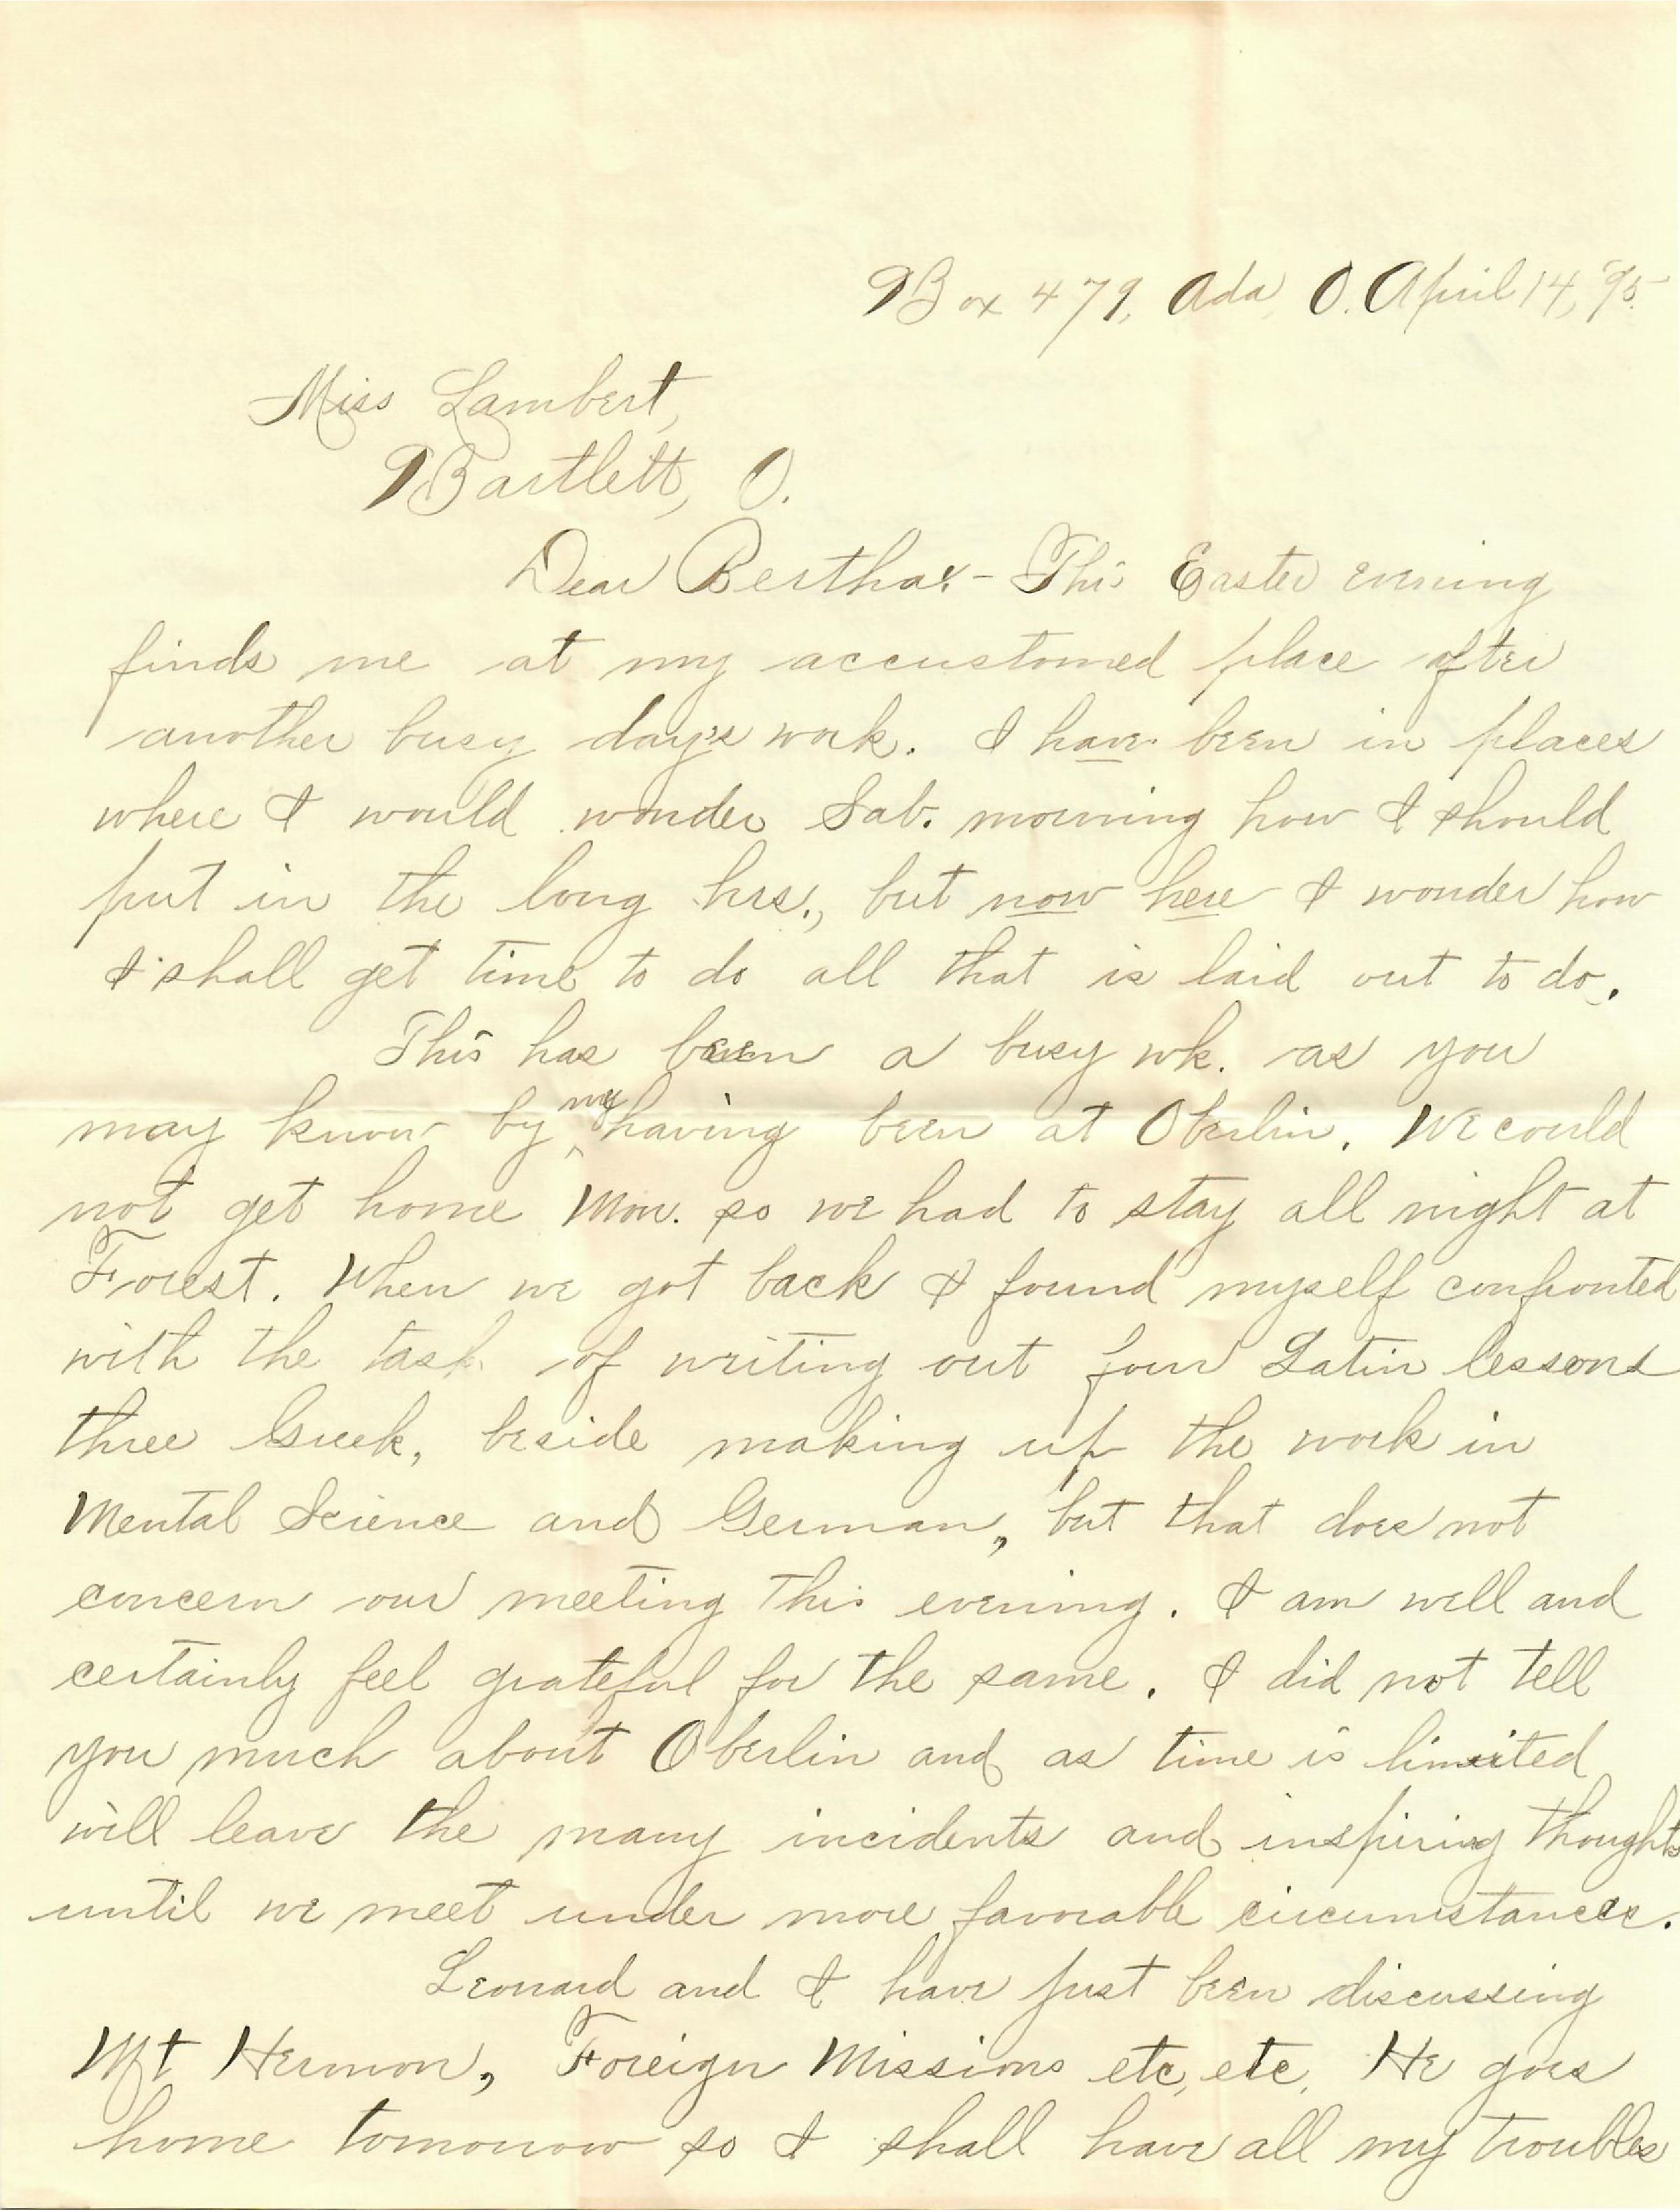 Box 479, Ada, O. April 14, '95.
Miss Lambert,
Bartlett, O.
Dear Bertha:- This Easter evening
finds me at my accustomed place after
another busy day's work. I have been in places
where I would wonder Sab. morning how I should
put in the long hrs., but now here I wonder how
I shall get time to do all that is laid out to do.
This has been a busy wk. as you
may know by my having been at Oberlin. We could
not get home Mon. so we had to stay all night at
Forest. When we got back I found myself confronted
with the task of writing out four Latin lessons
three Greek, beside making up the work in
Mental Science and German, but that does not
concern our meeting this evening. I am well and
certainly feel grateful for the same. I did not tell
you much about Oberlin and as time is limited
will leave the many incidents and inspiring thoughts
until we meet under more favorable circumstances.
Leonard and I have just been discussing
Mt Hermon, Foreign Missions etc, etc. He goes
home tomorrow so I shall have all my troubles